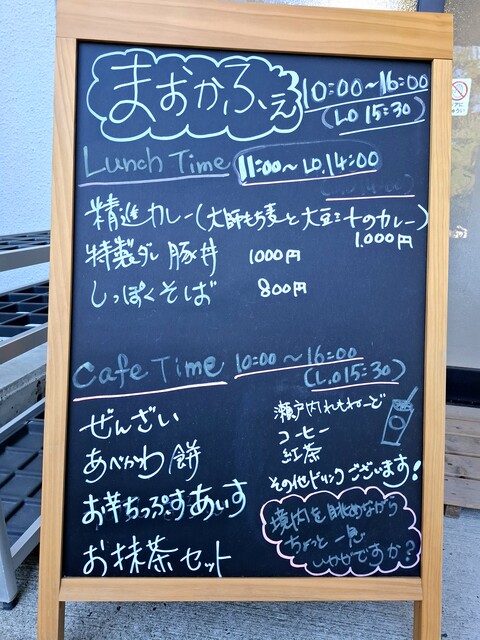 まおかふぇ
10:00～16:00
(L.O 15:30)
Lunch Time 11:00～LO.14:00
精進カレー(大師もち麦と大豆ミートのカレー)
1.000円
特製ダレ 豚丼 1000円
しっぽくそば 800円
Cafe Time 10:00～16:00
(L.O 15:30)
ぜんざい
あべかわ餅
お芋ちっぷすあいす
お抹茶セット
瀬戸内れもねーど
コーヒー
紅茶
その他ドリンクございます!
境内を眺めながら
ちょっと一息
いかがですか?